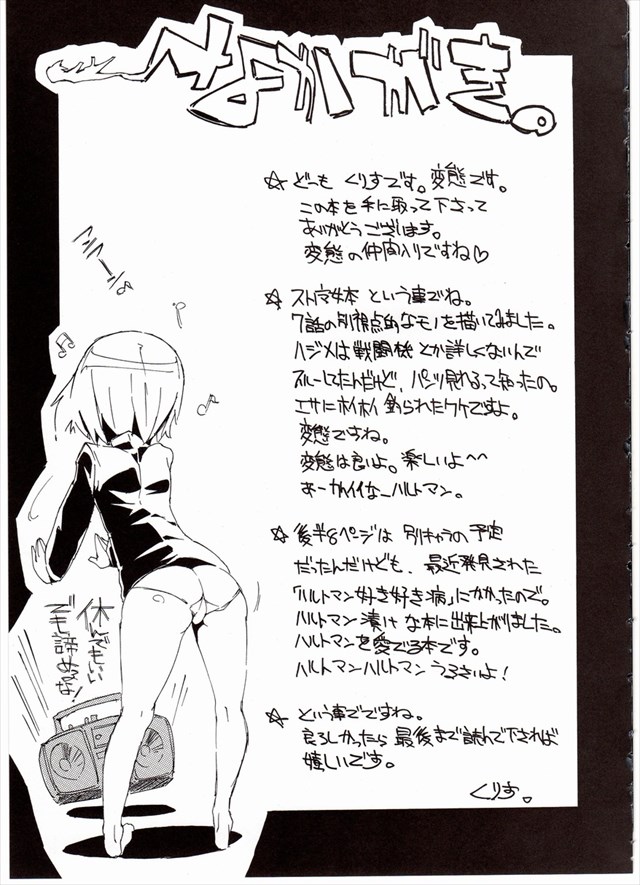 なかがき。
☆ どーも くりすです。変態です。
この本を手に取って下さって
ありがとうございます。
変態の仲間入りですね♡
☆ ストパン本 という事でね。
7話の別視点的なモノを描いてみました。
ハジメは戦闘機とか詳しくないんで
スルーしてたんだけど、パンツ見れるって知ったの。
エサにホイホイ釣られたワケですよ。
変態ですね。
変態は良いよ。楽しいよ〜〜
あーカワイイなーハルトマン。
☆ 後半8ページは 別キャラの予定
だったんだけども、最近発見された
「ハルトマン好き好き病」にかかったので。
ハルトマン漬けな本に出来上がりました。
ハルトマンを愛でる本です。
ハルトマンハルトマン うるさいよ!
☆ という事でですね。
良ろしかったら 最後まで読んで下されば
嬉しいです。
くりす。
休んでもいい
でも諦めるな!